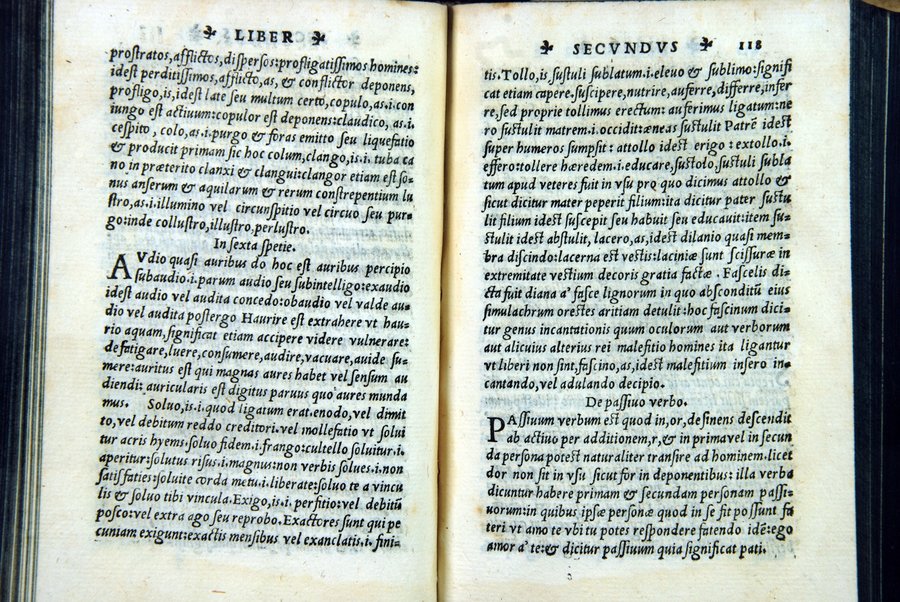 LIBER
prostratos,afflictos,dispersos:profligatissimos homines:
idest perditissimos,afflicto,as, & conflictor deponens,
profligo,is,idest late seu multum certo,copulo,as.i.con
iungo est actiuum:copulor est deponens:claudico, as.i.
cespito , colo,as.i.purgo & foras emitto seu liquefatio
& producit primam sic hoc colum,clango,is.i. tuba ca
no in præterito clanxi & clangui:clangor etiam est so⸗
nus anserum & aquilarum & rerum constrepentium lu
stro,as.i.illumino vel circunspitio vel circuo seu pur⸗
go:inde collustro,illustro.perlustro.
In sexta spetie.
AVdio quasi auribus do hoc est auribus percipio
subaudio.i.parum audio seu subintelligo:exaudio
idest audio vel audita concedo:obaudio vel valde au
dio vel audita postergo Haurire est extrahere vt hau⸗
rio aquam,significat etiam accipere videre vulnerare:
defatigare,luere,consumere,audire,vacuare,auide su⸗
mere:auritus est qui magnas aures habet vel sensum au
diendi:auricularis est digitus paruus quo aures munda
mus. Soluo,is.i.quod ligatum erat.enodo,vel dimit
to,vel debitum reddo creditori.vel mollefatio vt solui
tur acris hyems.soluo fidem.i.frango:cultello soluitur.i.
aperitur:solutus risus.i.magnus:non verbis solues.i.non
satisfaties:soluite corda metu.i.liberate:soluo te a vincu
lis & soluo tibi vincula.Exigo,is.i.perfitio:vel debitū
posco:vel extra ago seu reprobo.Exactores sunt qui pe
cuniam exigunt:exactis mensibus vel exanclatis.i. fini⸗
SECVNDVS 118
tis.Tollo,is sustuli sublatum.i.eleuo & sublimo:signifi
cat etiam capere.suscipere,nutrire,auferre,differre,infer
re,sed proprie tollimus erectum: auferimus ligatum:ne
ro sustulit matrem.i.occidit:æneas sustulit Patrē idest
super humeros sumpsit: attollo idest erigo:extollo.i.
effero:tollere hæredem.i.educare,sustolo,sustuli subla
tum apud veteres fuit in vsu pro quo dicimus attollo &
sicut dicitur mater peperit filium:ita dicitur pater sustu
lit filium idest suscepit seu habuit seu educauit:item su⸗
stulit idest abstulit, lacero,as,idest dilanio quasi mem⸗
bra discindo:lacerna est vestis:laciniæ sunt scissuræ in
extremitate vestium decoris gratia factæ . Fascelis di⸗
cta fuit diana a' fasce lignorum in quo absconditū eius
simulachrum orestes aritiam detulit:hoc fascinum dici⸗
tur genus incantationis quum oculorum aut verborum
aut alicuius alterius rei malefitio homines ita ligantur
vt liberi non sint,fascino,as,idest malefitium infero in⸗
cantando,vel adulando decipio.
De passiuo verbo.
PAssiuum verbum est quod in,or,desinens descendit
ab actiuo per additionem,r,& in primavel in secun
da persona potest naturaliter transire ad hominem.licet
dor non sit in vsu sicut for in deponentibus: illa verba
dicuntur habere primam & secundam personam passi⸗
uorum:in quibus ipsæ personæ quod in se fit possunt fa
teri vt amo te vbi tu potes respondere fatendo idē:ego
amor a' te:& dicitur passiuum quia significat pati.